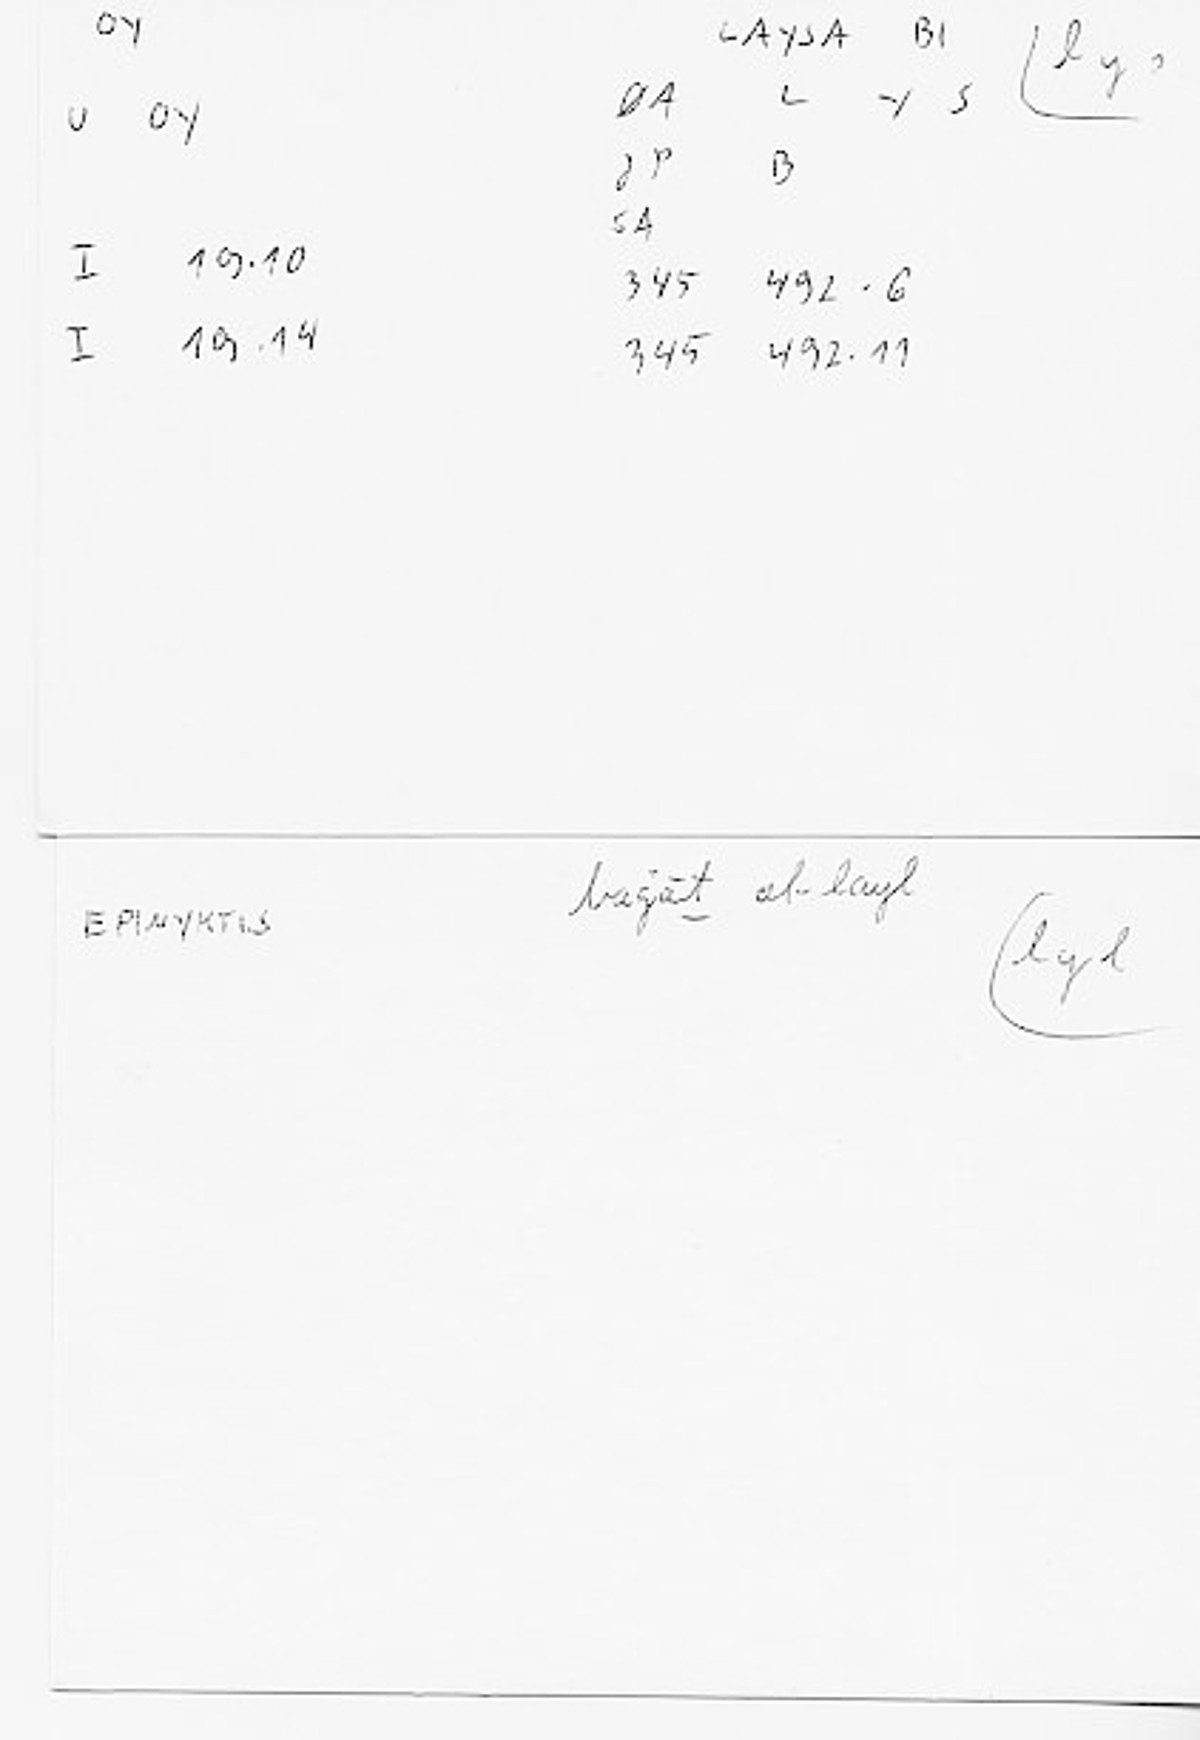 OY LAYSA BI
U OY ØA L Y S
JP B
SA
I 19.10 345 492.6
I 19.14 345 492.11
EPINYKTIS al-layl
lyl